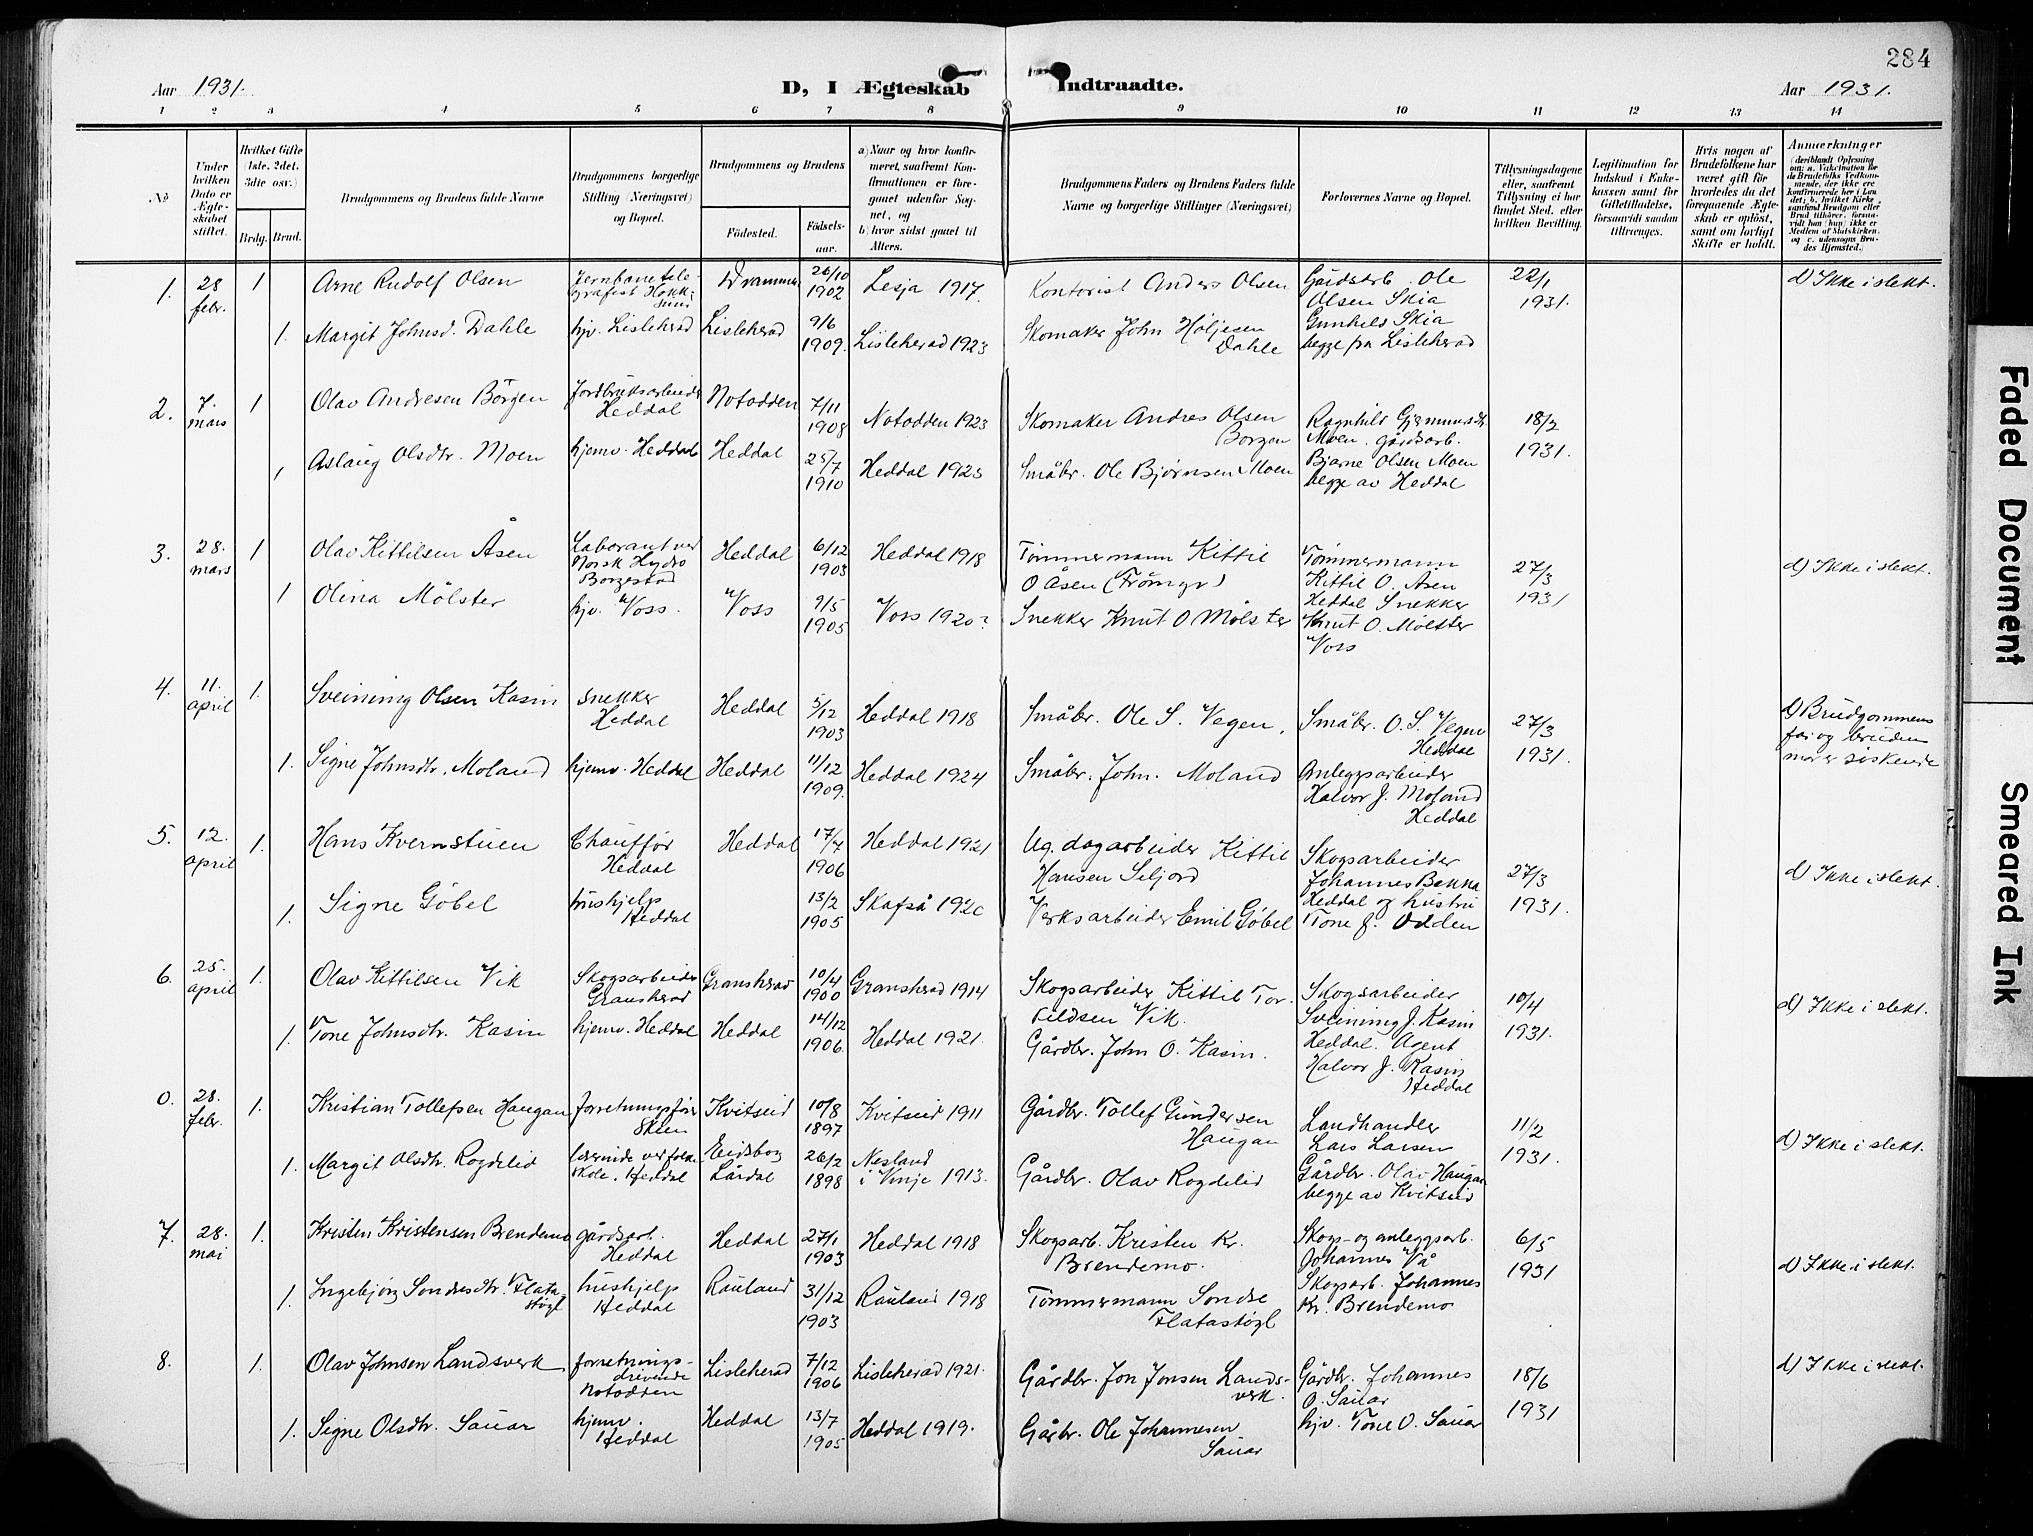 284
Aar 1931.
D, I Ægteskab Indtraadte.
Aar 1931.
1 2 3 4 5 6 7 8 9 10 11 12 13 14
No
Under hvilken Dato er Ægteskabet stiftet.
Hvilket Gifte (1ste, 2det, 3die osv.)
Brdg. Brud.
Brudgommens og Brudens fulde Navne
Brudgommens borgerlige Stilling (Næringsvei) og Bopæl.
Brudgommens og Brudens
Fødested.
Fødselsaar.
a) Naar og hvor konfirmeret, saafremt Konfirmationen er foregaaet udenfor Sognet, og
b) hvor sidst gaaet til Alters.
Brudgommens Faders og Brudens Faders fulde Navne og borgerlige Stillinger (Næringsvei)
Forlovernes Navne og Bopæl.
Tillysningsdagene eller, saafremt Tillysning ei har fundet Sted, efter hvilken Bevilling.
Legitimation for Indskud i Enkekassen samt for Giftetilladelse, forsaavidt saadan tiltrænges.
Hvis nogen af Brudefolkene har været gift før hvorledes da det foregaaende Ægteskab er opløst, samt om lovligt Skifte er holdt.
Anmerkninger
1. 28 febr. 1 Arne Rudolf Olsen Jernbanetelegrafist Hokksund Drammen 26/10 1902 Lesja 1917. Kontorist Anders Olsen Gårdsarb. Ole Olsen Skia 22/1 1931. d) Ikke i slekt.
1. Margit Johnsd. Dahle hjv. Lisleherad Lisleherad 9/6 1909. Lisleherad 1923 Skomaker John Høljesen Dahle Gunhild Skia begge fra Lisleherad
2. 7. mars 1 Olav Andresen Borgen Jordbruksarbeider Heddal Notodden 7/11 1908 Notodden 1923 Skomaker Andres Olsen Borgen Ragnhild Gjermundsdt. Moen. gårdsarb. 18/2 1931.
1 Aslaug Olsdtr. Moen hjemv. Heddal Heddal 25/7 1910 Heddal 1925 Småbr. Ole Bjørnsen Moen Bjarne Olsen Moen begge av Heddal
3. 28. mars 1 Olav Kittilsen Åsen Laborant ved Norsk Hydro Borgestad Heddal 6/12 1903 Heddal 1918 Tømmermann Kittil O Åsen Tømmermann Kittil O. Åsen Heddal 27/3 1931 d) Ikke i slekt.
1 Olina Mølster hjv. Voss. Voss 9/5 1905 Voss 1920? Snekker Knut O Mølster Snekker Knut O. Mølster Voss
4. 11. april 1. Sveinung Olsen Kasin snekker Heddal Heddal 5/12 1903 Heddal 1918 Småbr. Ole S. Vegen. Småbr. O. S. Vegen Heddal 27/3 1931. d) Brudgommens far og bruden mor er søskende
1. Signe Johnsdtr. Moland hjemv. Heddal Heddal 11/12 1909. Heddal 1924 Småbr. John. Moland Anleggsarbeider Halvor J. Moland Heddal
5. 12. april 1. Hans Kvernstuen Chauffør Heddal Heddal 17/7 1906 Heddal 1921 Ug. dagarbeider Kittil Hansen Seljord Skogsarbeider Johannes Bakka Heddal og hustru 27/3 1931. d) Ikke i slekt.
1. Signe Göbel hushjelp Heddal 13/2 1905 Skafså 1920 Verksarbeider Emil Göbel Tone J. Odden
6. 25. april 1. Olav Kittilsen Vik Skogsarbeider Gransherad Gransherad 10/4 1900 Gransherad 1914 Skogsarbeider Kittil Torkildsen Vik. Skogsarbeider Sveinung J. Kasin Heddal. 10/4 1931. d) Ikke i slekt.
1. Tone Johnsdtr. Kasin hjemv. Heddal Heddal 14/12 1906. Heddal 1921. Gårdbr. John O. Kasin. Agent Halvor J. Kasin Heddal
0. 28. febr. 1. Kristian Tollefsen Haugan forretningsfører Skien Kvitseid 10/8 1897 Kvitseid 1911 Gårdbr. Tollef Gundersen Haugan Landhandler Lars Larsen 11/2 1931. d) Ikke i slekt.
1. Margit Olsdtr. Rogdelid lærerinde ved folkeskole. Heddal Eidsborg Lårdal 26/2 1898 Nesland i Vinje 1913. Gårdbr. Olav Rogdelid Gårdbr. Olav Haugan begge av Kvitseid
7. 28. mai 1. Kristen Kristensen Brendemo gårdsarb. Heddal Heddal 27/1 1903 Heddal 1918 Skogsarb. Kristen Kr. Brendemo. Skogs- og anleggsarb. Johannes Vå 6/5 1931 d) Ikke i slekt.
1. Ingebjørg Sondresdtr. Flatastøgl hushjelp Heddal Rauland 31/12 1903 Rauland 1918 Tømmermann Sondre Flatastøgl Skogsarb. Johannes Kr. Brendemo
8. 1. Olav Johnsen Landsverk forretningsdrivende Notodden Lisleherad 7/12 1906 Lisleherad 1921. Gårdbr. Jon Jonsen Landsverk. Gårdbr. Johannes O. Sauar 18/6 1931 d) Ikke i slekt.
1. Signe Olsdtr. Sauar hjemv. Heddal Heddal 13/7 1905 Heddal 1919. Gårbr. Ole Johannesen Sauar hjv. Tone O. Sauar
Faded Document
Smeared Ink